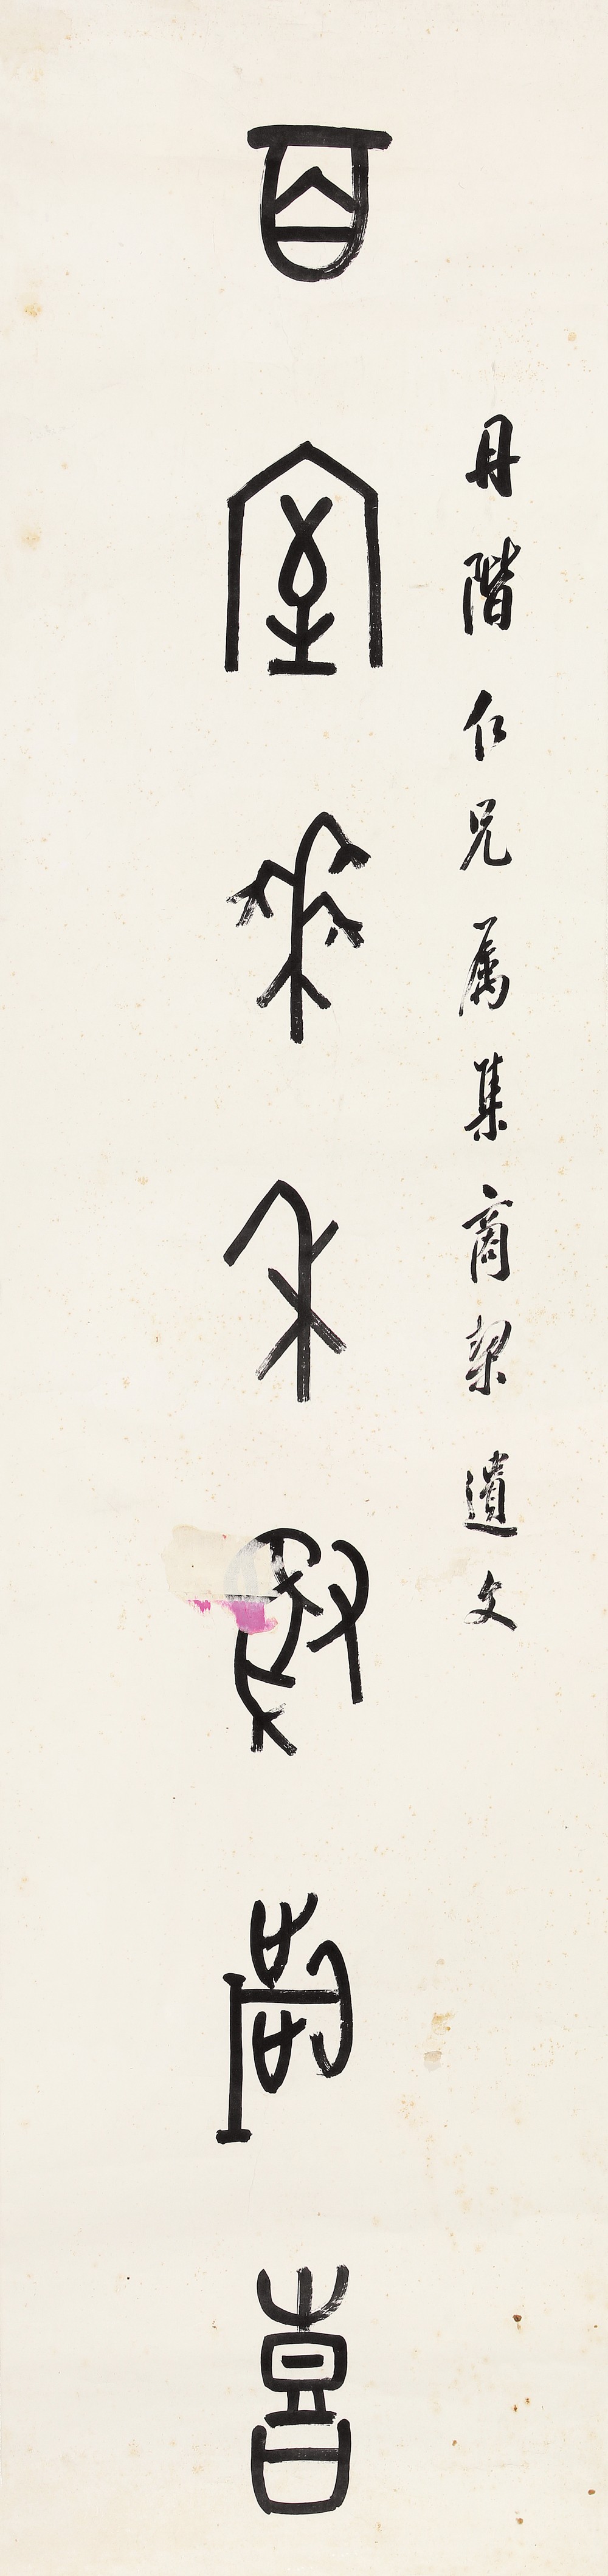 丹階仁兄属集商栔遺文
百室黍禾歲喜